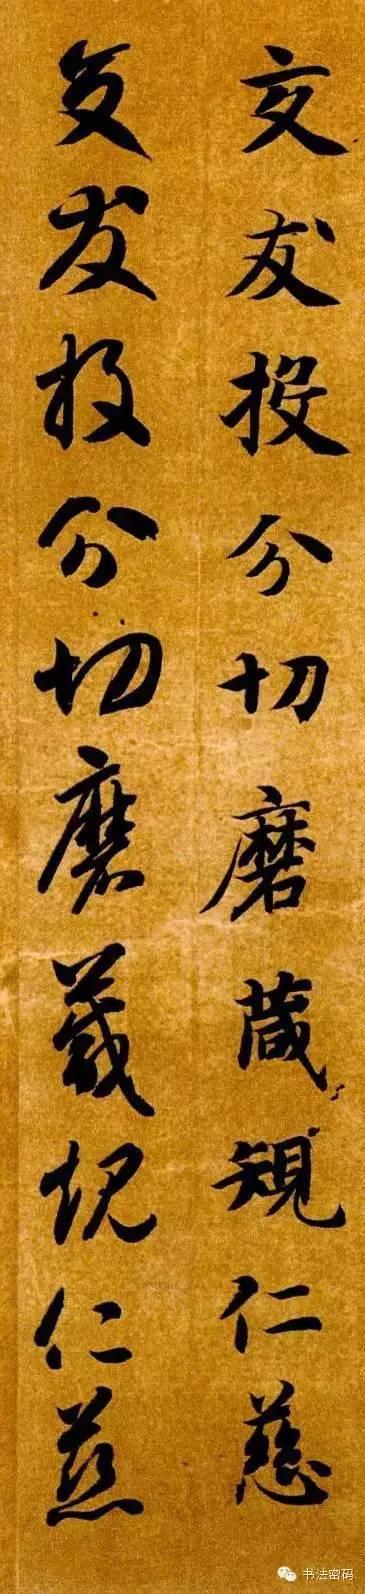 交友投分切磨箴規仁慈
交友投分切磨箴規仁慈
书法密码